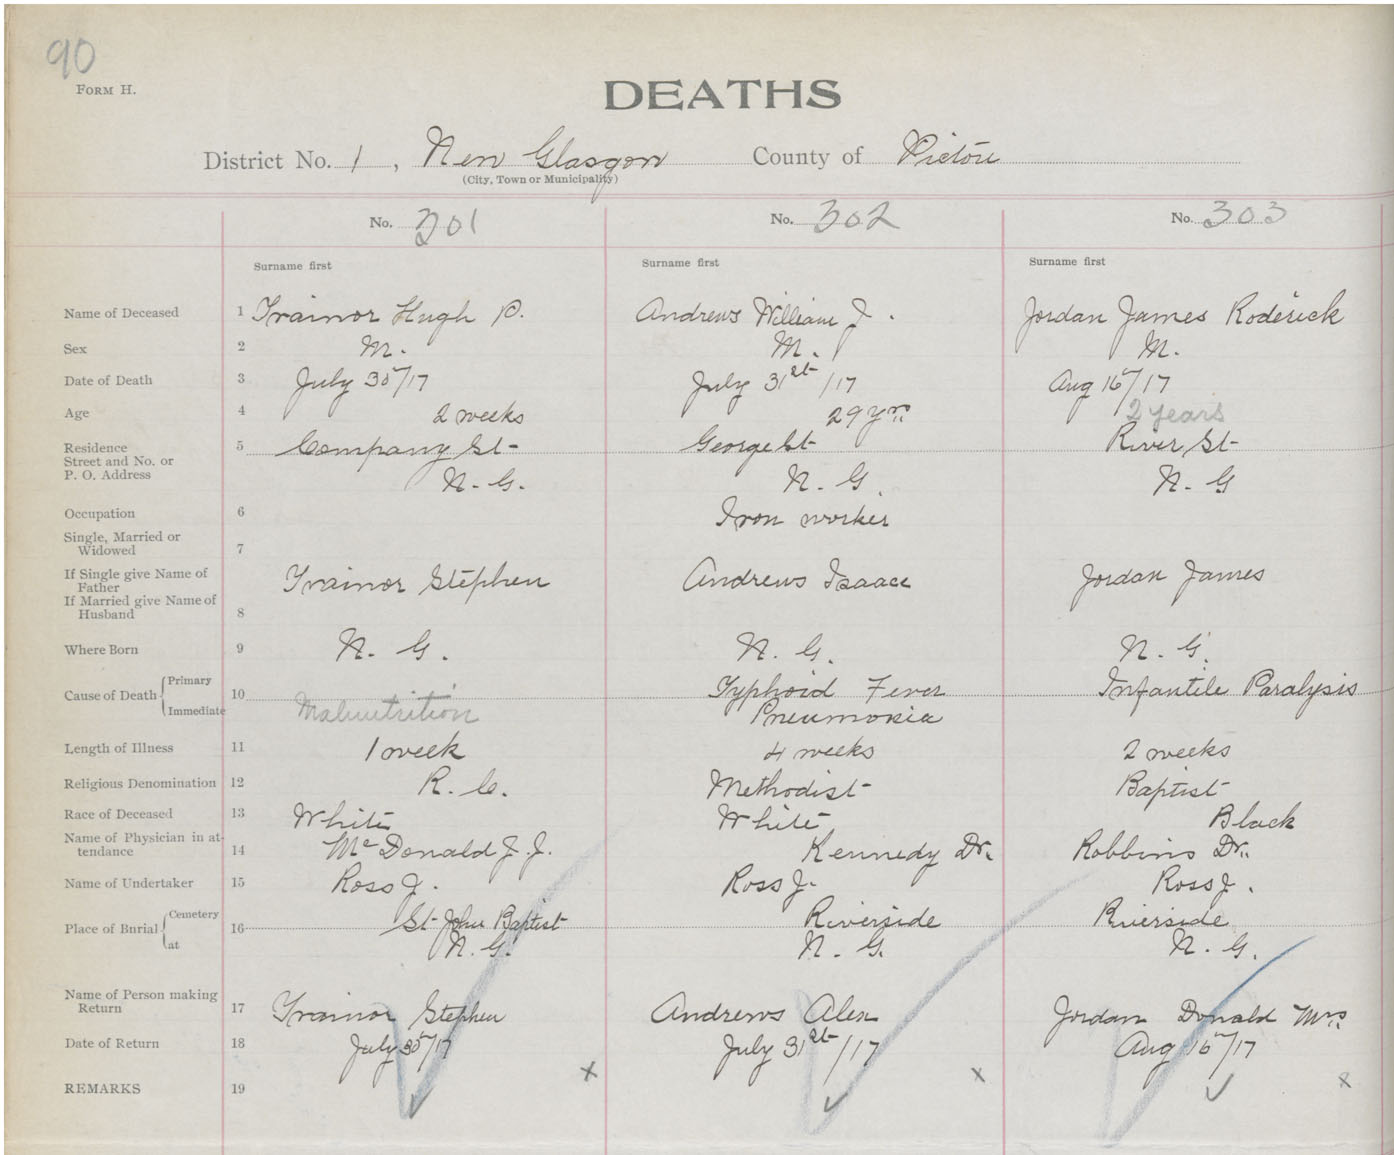 90
FORM H.
DEATHS
District No. 1, New Glasgow County of Pictou
(City, Town or Municipality)
No. 301 No. 302 No. 303
Surname first Surname first Surname first
Name of Deceased 1 Trainor Hugh P. Andrews William J. Jordan James Roderick
Sex 2 M. M. M.
Date of Death 3 July 30/17 July 31st/17 Aug 16/17
Age 4 2 weeks 29 yrs 2 years
Residence 5 Company St George St River St
Street and No. or
P. O. Address N. G. N. G. N. G
Occupation 6 Iron worker
Single, Married or
Widowed 7
If Single give Name of
Father Trainor Stephen Andrews Isaace Jordan James
If Married give Name of
Husband 8
Where Born 9 N. G. N. G. N. G.
Cause of Death Primary 10 Typhoid Fever Infantile Paralysis
Immediate Malnutrition Pneumonia
Length of Illness 11 1 week 4 weeks 2 weeks
Religious Denomination 12 R. C. Methodist Baptist
Race of Deceased 13 White White Black
Name of Physician in at-
tendance 14 McDonald J. J. Kennedy Dr. Robbins Dr.
Name of Undertaker 15 Ross J. Ross J. Ross J.
Place of Burial Cemetery 16 St John Baptist Riverside Riverside
at N. G. N. G. N. G.
Name of Person making
Return 17 Trainor Stephen Andrews Alex Jordan Donald Mrs
Date of Return 18 July 30/17 July 31st/17 Aug 16/17
REMARKS 19 x x x